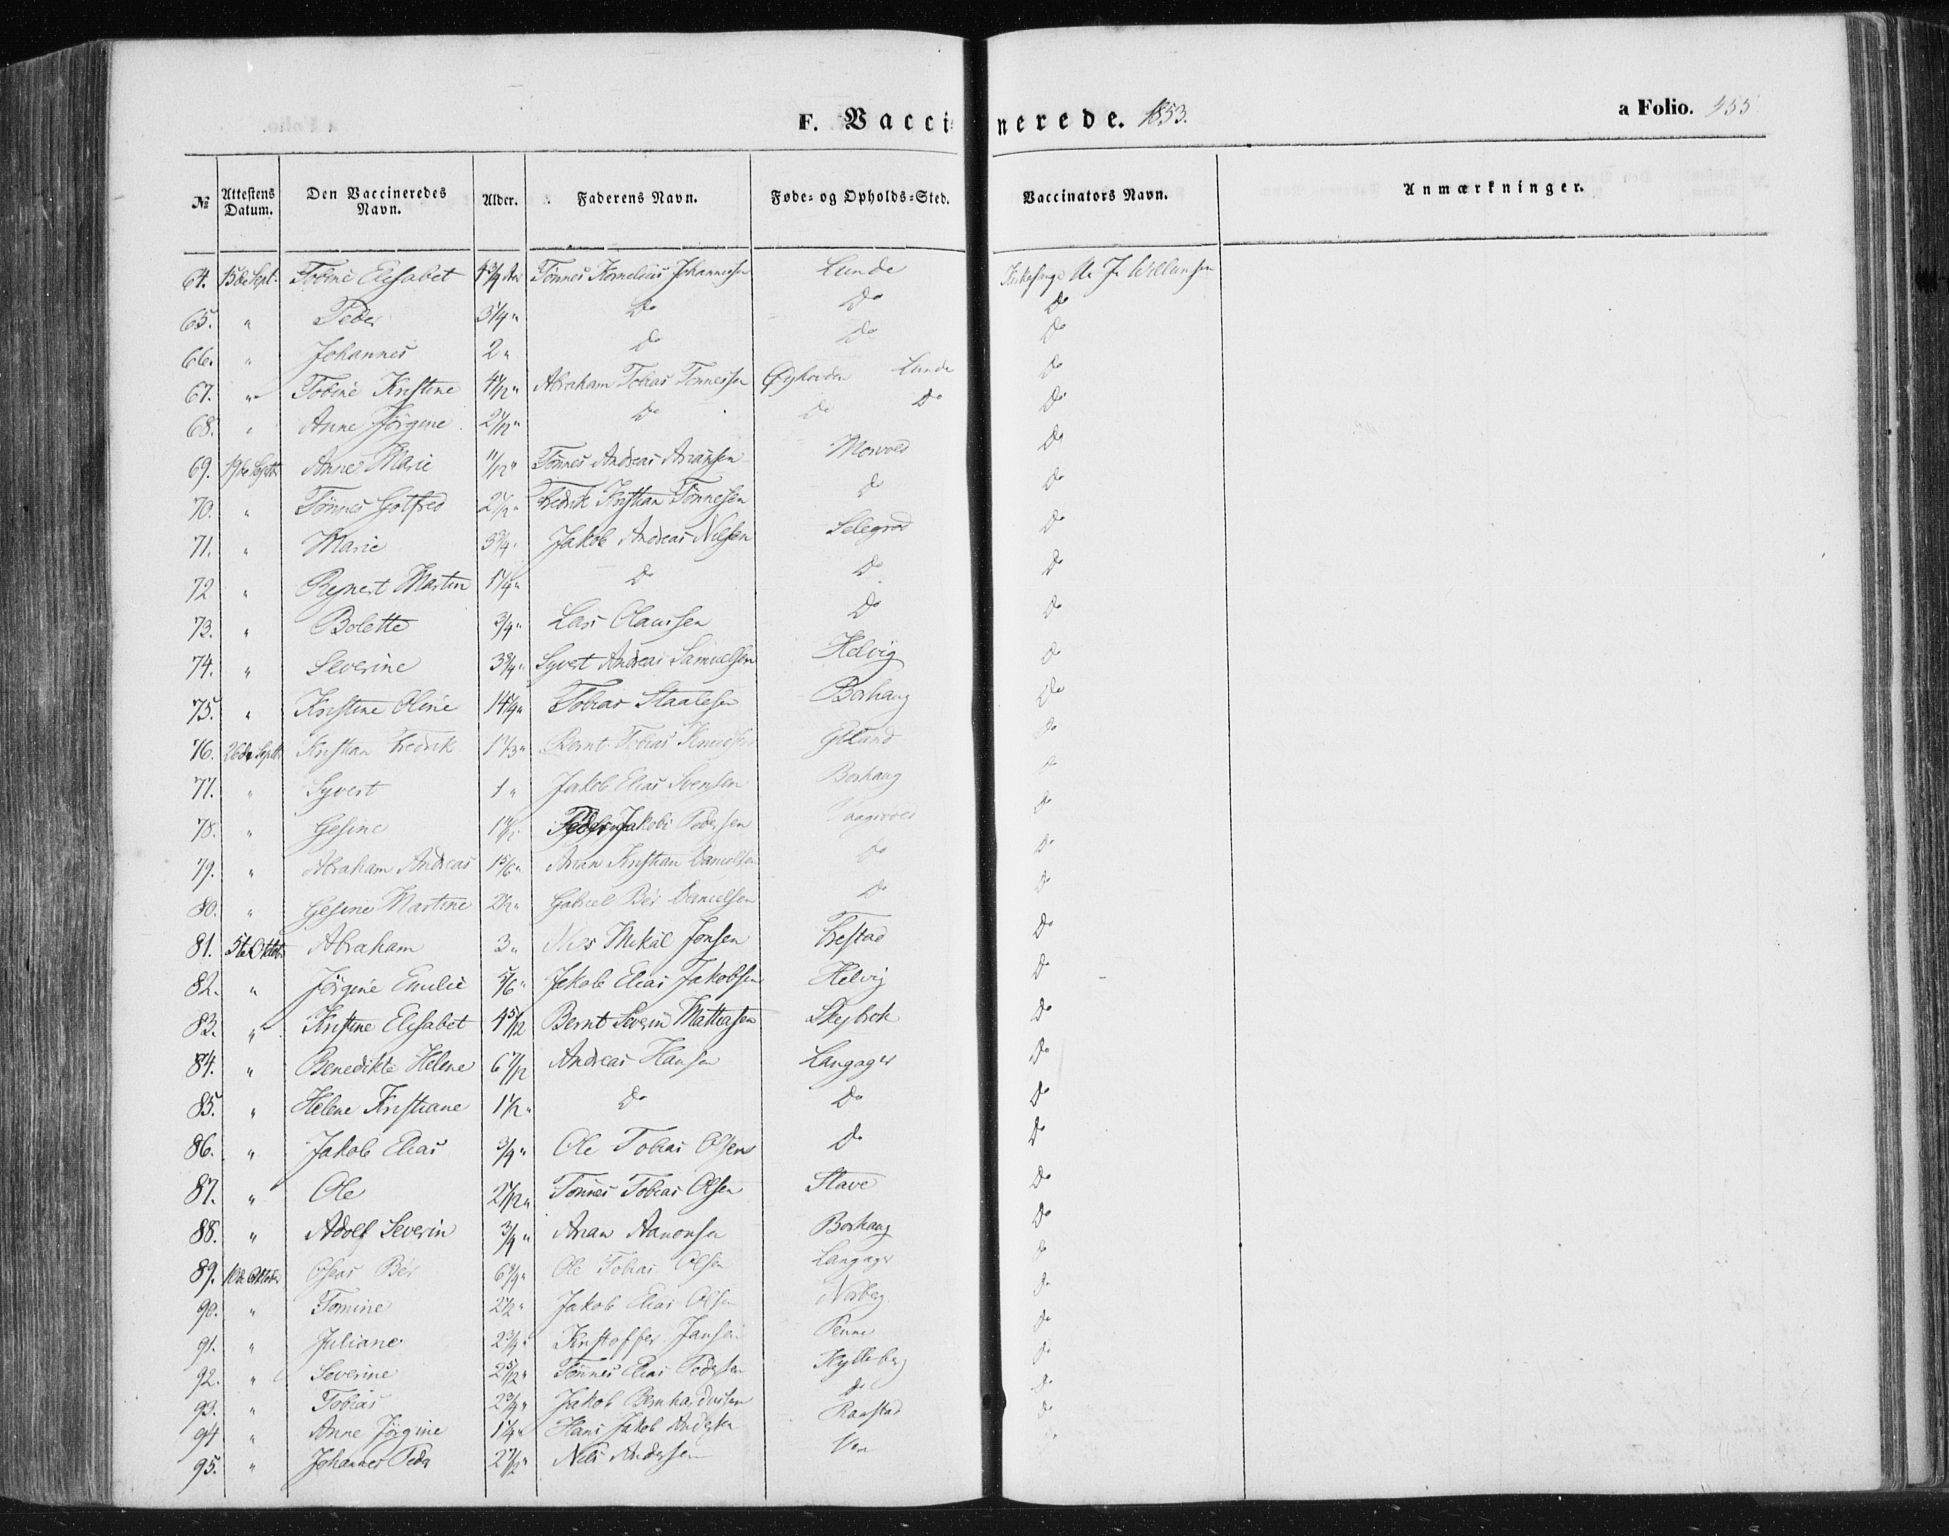 F. Vaccinerede. 1853.
a Folio. 455
№ Attestens Datum. Den Vaccineredes Navn. Alder. Faderens Navn. Føde- og Opholds-Sted. Vaccinators Navn. Anmærkninger.
64. 15de Sept. Tobine Elisabet 4 3/4 Tønnes Kornelius Johannessen Lunde Willumsen
65. " Peder 3 1/4 " Do Do Do
66. " Johannes 2 " Do Do Do
67. " Tobine Kristine Abraham Tobias Tønnessen Lunde Do
68. " Anne Jörgine Do Do Do Do
69. 19de Septb. Anne Marie 11/12 " Tönnes Andreas Do
70. " Tönnes Gotfred Fredrik Kristian Tönnesen Do Do
71. " Marie 3 3/4 " Jakob Andreas Nilsen Do
72 " Reynert Martin 1 1/4 " Do Do Do
73. " Bolette 3/4 " Lars Olaussen Do Do
74. " Severine 3 3/4 " Syvert Andreas Samuelsen Helvig Do
75. " Kristine Oline Tobias Staalesen Borhaug Do
76. 26de Septb. Kristian Fredrik 1 1/3 " Bernt Tobias Knudsen Do
77. " Syvert 1 " Jakob Elias Svensen Borhaug Do
78. " Gesine Jakob Pedersen Do
79. " Abraham Andreas 1 5/6 " Arian Kristian Danielsen Do Do
80. " Gesine Martine 2 1/2 " Gabriel Danielsen Do Do
81. 5te Oktob. Abraham 3 " Nils Mikal Jonsen Do
82. " Jörgine Emilie 5/6 " Jakob Elias Jakobsen Helvig Do
83. " Kristine Elisabet 4 5/12 Bernt Severin Mathiasen Skeibrok Do
84. " Benedikte Helene 6 7/12 Andreas Hansen Langager Do
85. " Helene Kristiane 1 1/2 " Do Do Do
86. " Jakob Elias 3/4 " Ole Tobias Olsen Do Do
87. " Ole Tönnes Tobias Olsen Stave Do
88. " Adolf Severin 3/4 " Arian Aanonsen Borhaug Do
89. 10de Oktober Ole Tobias Olsen Langager Do
90. " Tomine 2 1/2 " Jakob Elias Olsen Norberg Do
91. " Juliane 2 3/4 " Kristoffer Jansen Penne Do
92. " Severine 2 5/12 " Tönnes Elias Pedersen Do
93. " Tobias 2 3/4 " Jakob Bernhardussen Do Do
94 " Anne Jörgine 1 1/4 " Hans Jakob Andersen Do
95. " Johannes Peder Nils Andersen